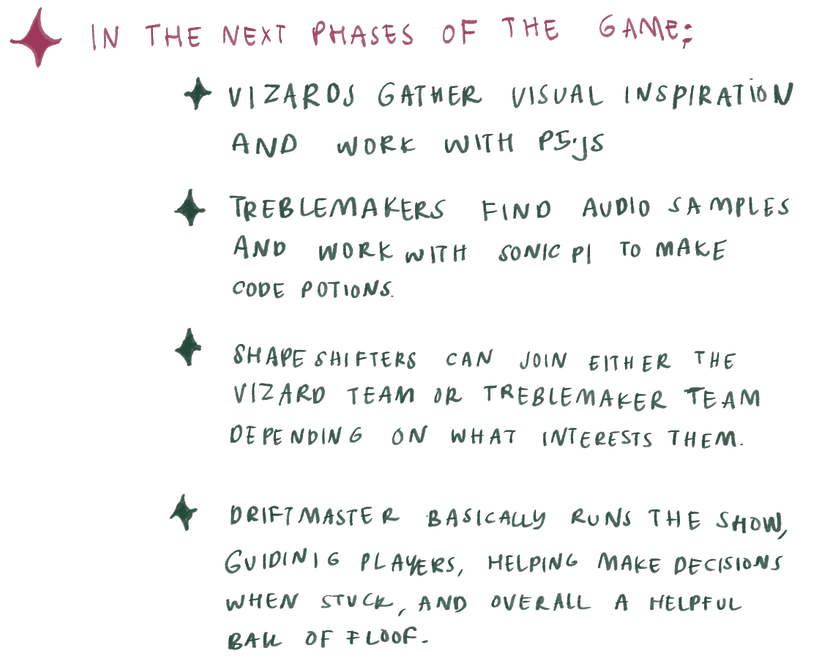 IN THE NEXT PHASES OF THE GAME:
VIZARDS GATHER VISUAL INSPIRATION
AND WORK WITH P5.JS
TREBLEMAKERS FIND AUDIO SAMPLES
AND WORK WITH SONIC PI TO MAKE
CODE POTIONS.
SHAPESHIFTERS CAN JOIN EITHER THE
VIZARD TEAM OR TREBLEMAKER TEAM
DEPENDING ON WHAT INTERESTS THEM.
DRIFTMASTER BASICALLY RUNS THE SHOW,
GUIDING PLAYERS, HELPING MAKE DECISIONS
WHEN STUCK, AND OVERALL A HELPFUL
BALL OF FLOOF.